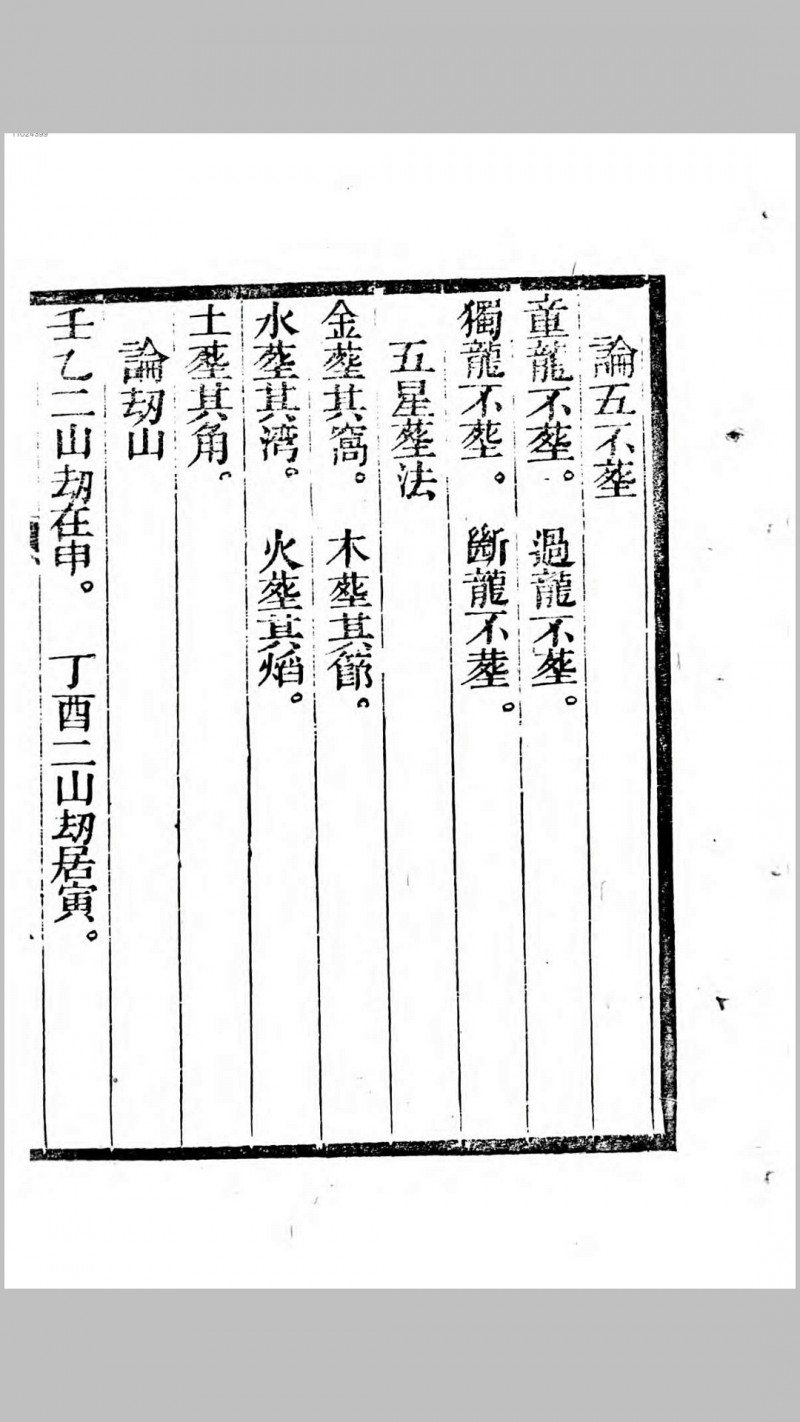 論五不塟
童龍不塟。　過龍不塟。
獨龍不塟。　斷龍不塟。
五星塟法
金塟其窩。　木塟其節。
水塟其湾。　火塟其焰。
土塟其角。
論刼山
壬乙二山刼在申。　丁酉二山刼居寅。